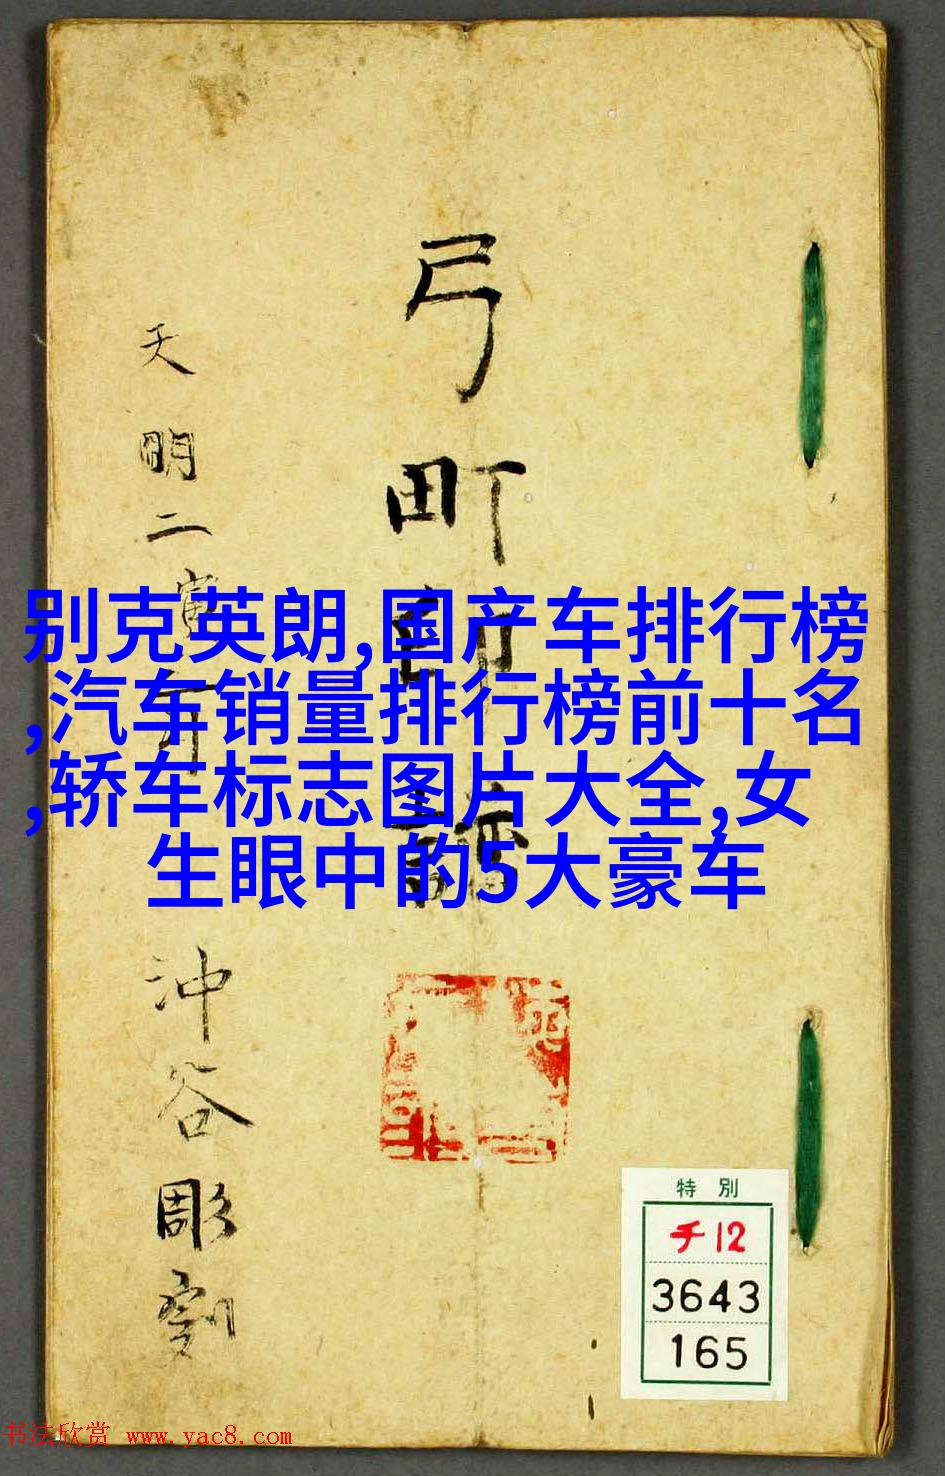 弓町印譜
天明二寅年 沖谷彫刻
别克英朗,国产车排行榜
,汽车销量排行榜前十名
,轿车标志图片大全,女
生眼中的5大豪车
特別
チ12
3643
165
书法欣赏 www.yac8.com